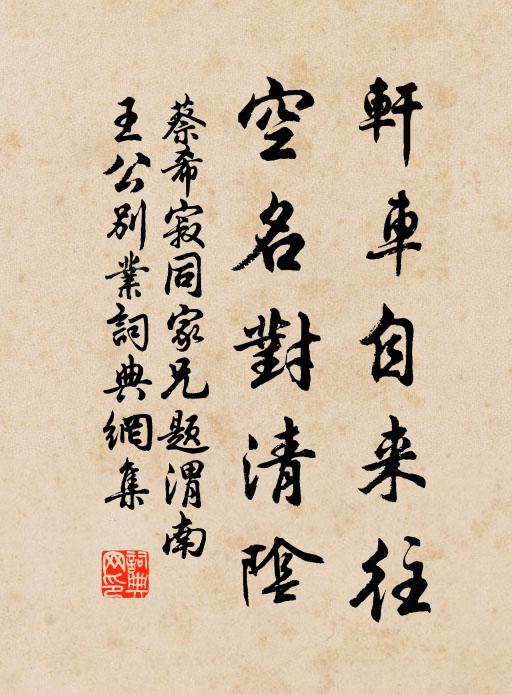 軒車自来往
空名對清陰
蔡希寂同家兄題渭南
王公別業詞典網集
詞典網印